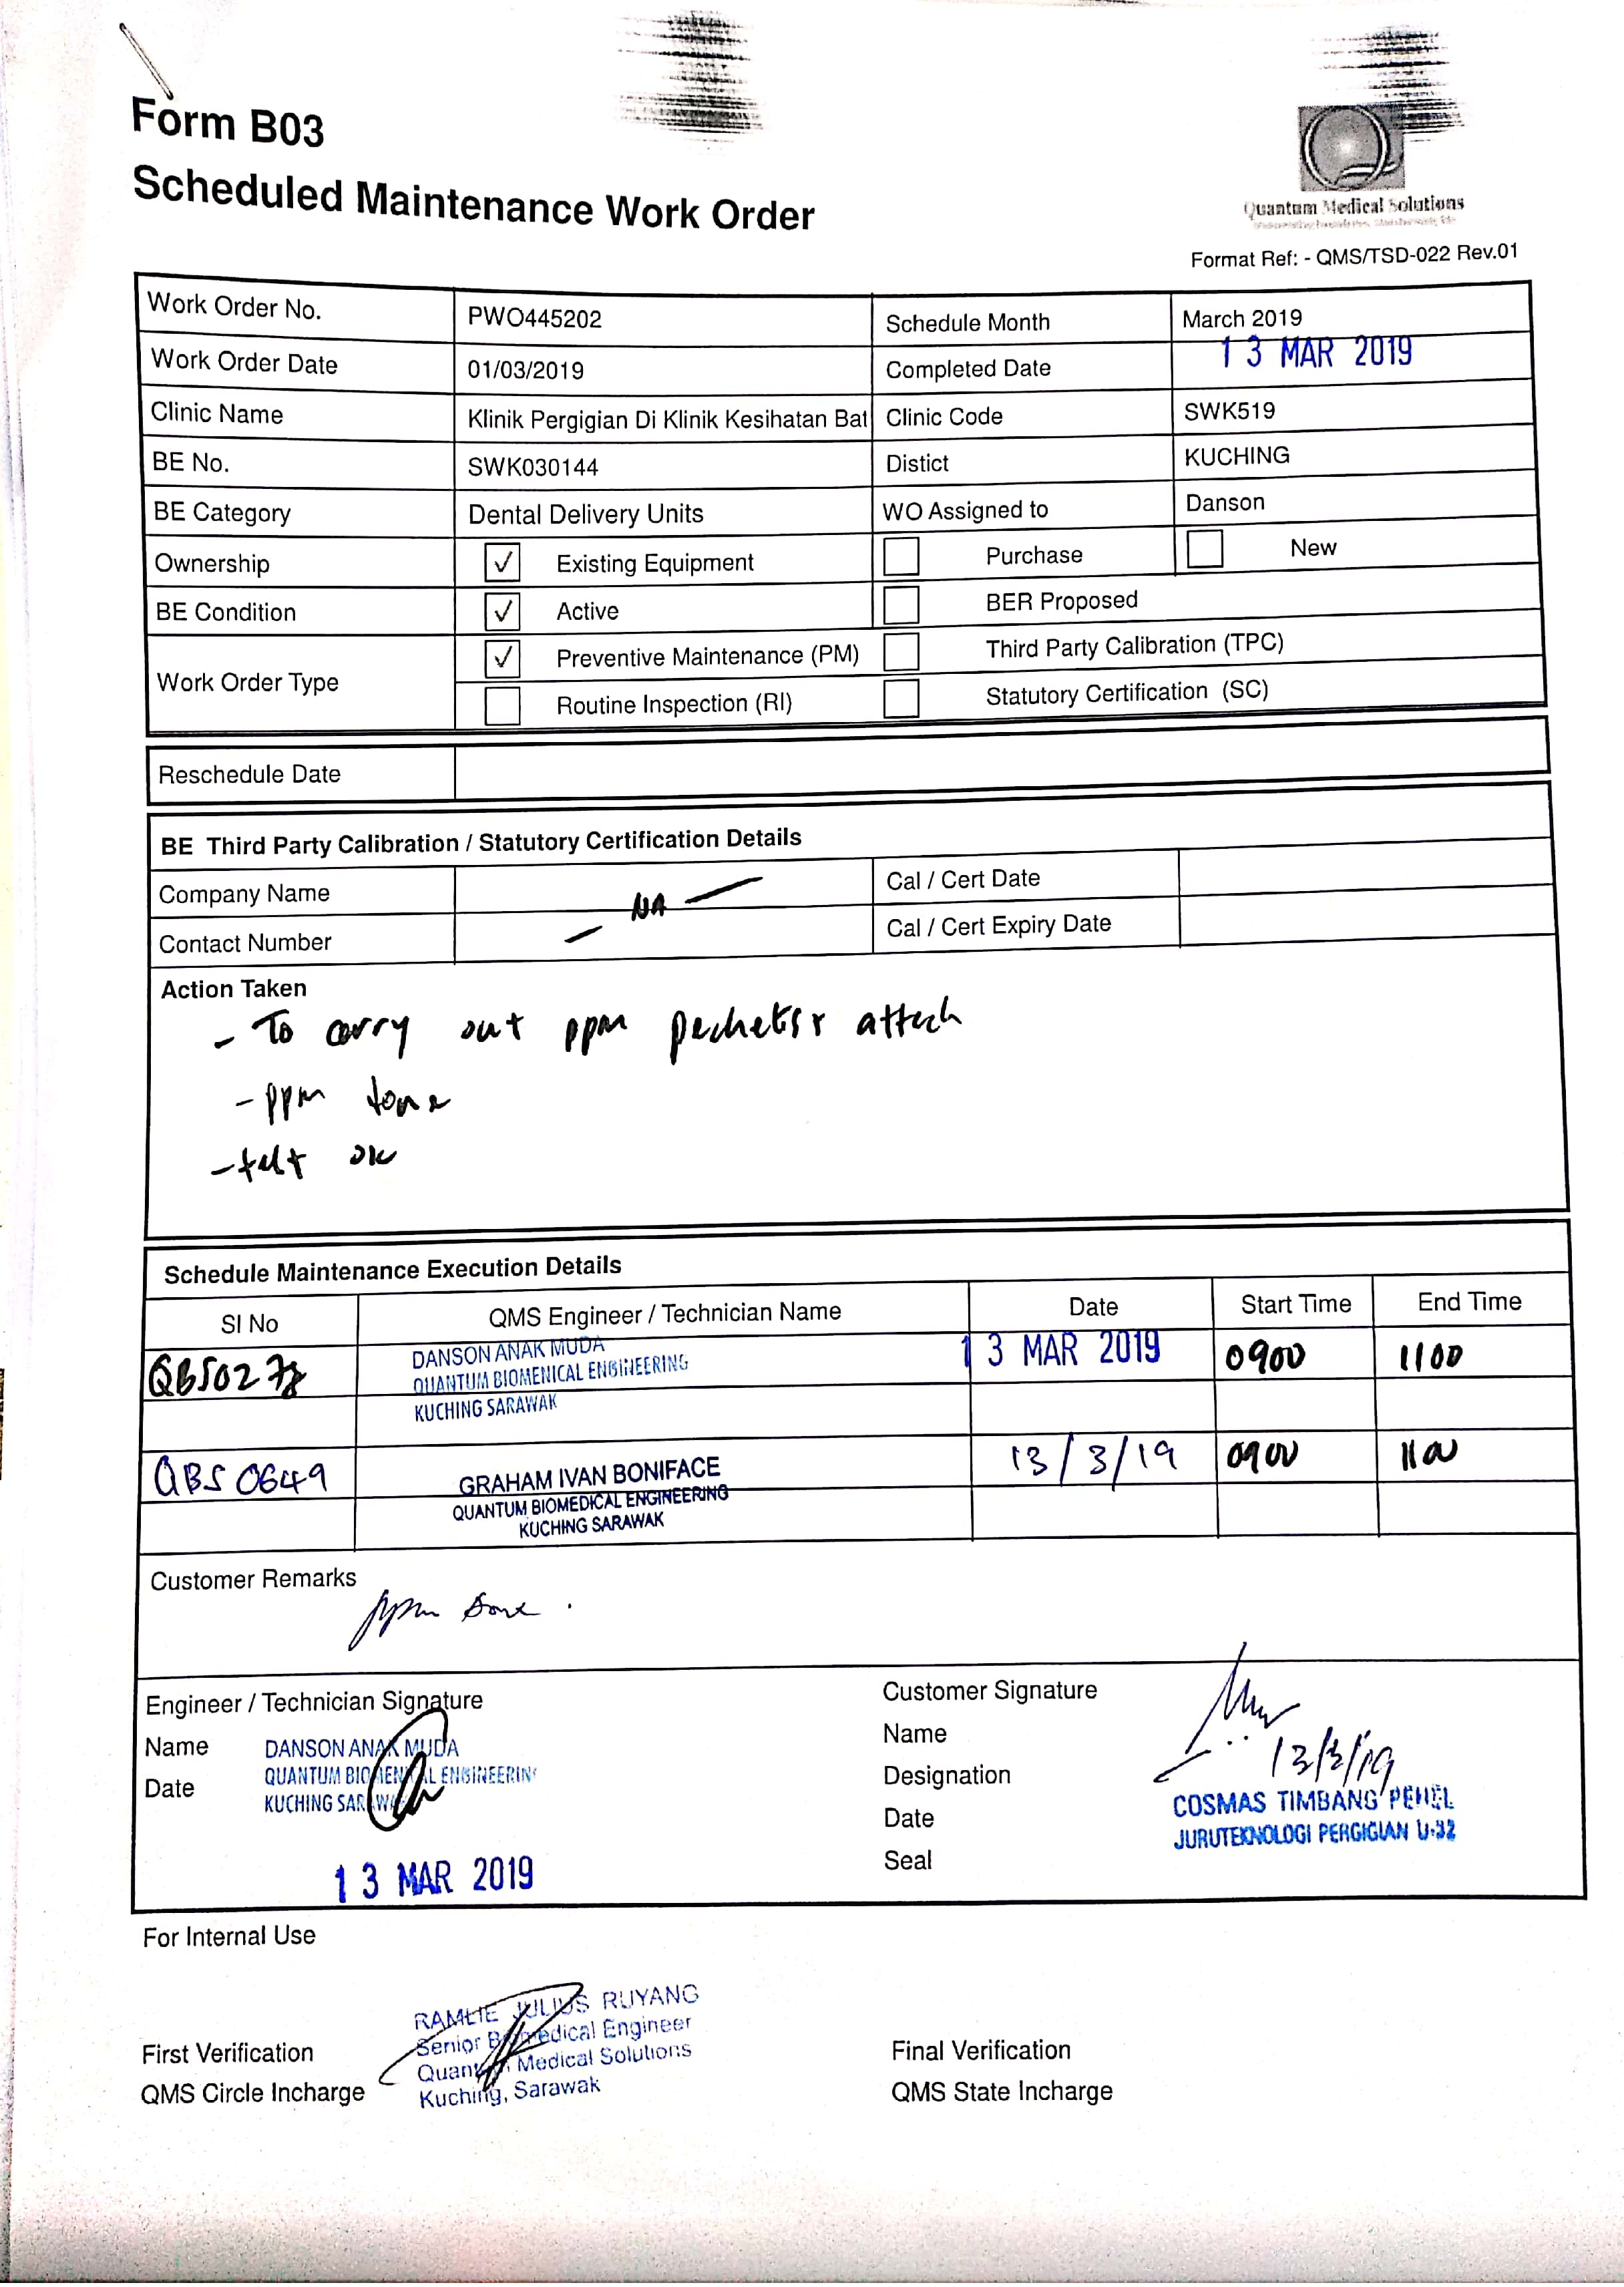 Form B03
Scheduled Maintenance Work Order
Quantum Medical Solutions
Format Ref: - QMS/TSD-022 Rev.01
Work Order No. PWO445202 Schedule Month March 2019
Work Order Date 01/03/2019 Completed Date 13 MAR 2019
Clinic Name Klinik Pergigian Di Klinik Kesihatan Bat Clinic Code SWK519
BE No. SWK030144 Distict KUCHING
BE Category Dental Delivery Units WO Assigned to Danson
Ownership ✓ Existing Equipment Purchase New
BE Condition ✓ Active BER Proposed
Work Order Type ✓ Preventive Maintenance (PM) Third Party Calibration (TPC)
Routine Inspection (RI) Statutory Certification (SC)
Reschedule Date
BE Third Party Calibration / Statutory Certification Details
Company Name Cal / Cert Date
- NA -
Contact Number Cal / Cert Expiry Date
Action Taken
- To carry out ppm attach
- ppm done
- test ok
Schedule Maintenance Execution Details
SI No QMS Engineer / Technician Name Date Start Time End Time
DANSON ANAK MUDA 13 MAR 2019 0900 1100
QUANTUM BIOMENICAL ENGINEERING
KUCHING SARAWAK
QBS0649 GRAHAM IVAN BONIFACE 13/3/19 0900 1100
QUANTUM BIOMEDICAL ENGINEERING
KUCHING SARAWAK
Customer Remarks
ppm done.
Engineer / Technician Signature
Name DANSON ANAK MUDA
Date QUANTUM BIOMENICAL ENGINEERIN
KUCHING SARAWAK
13 MAR 2019
Customer Signature
Name
13/3/19
Designation
COSMAS TIMBANG
Date
JURUTEKNOLOGI PERGIGIAN U-32
Seal
For Internal Use
RAMLIE JULIUS RUYANG
Senior Biomedical Engineer
Quantum Medical Solutions
Kuching, Sarawak
First Verification
QMS Circle Incharge
Final Verification
QMS State Incharge